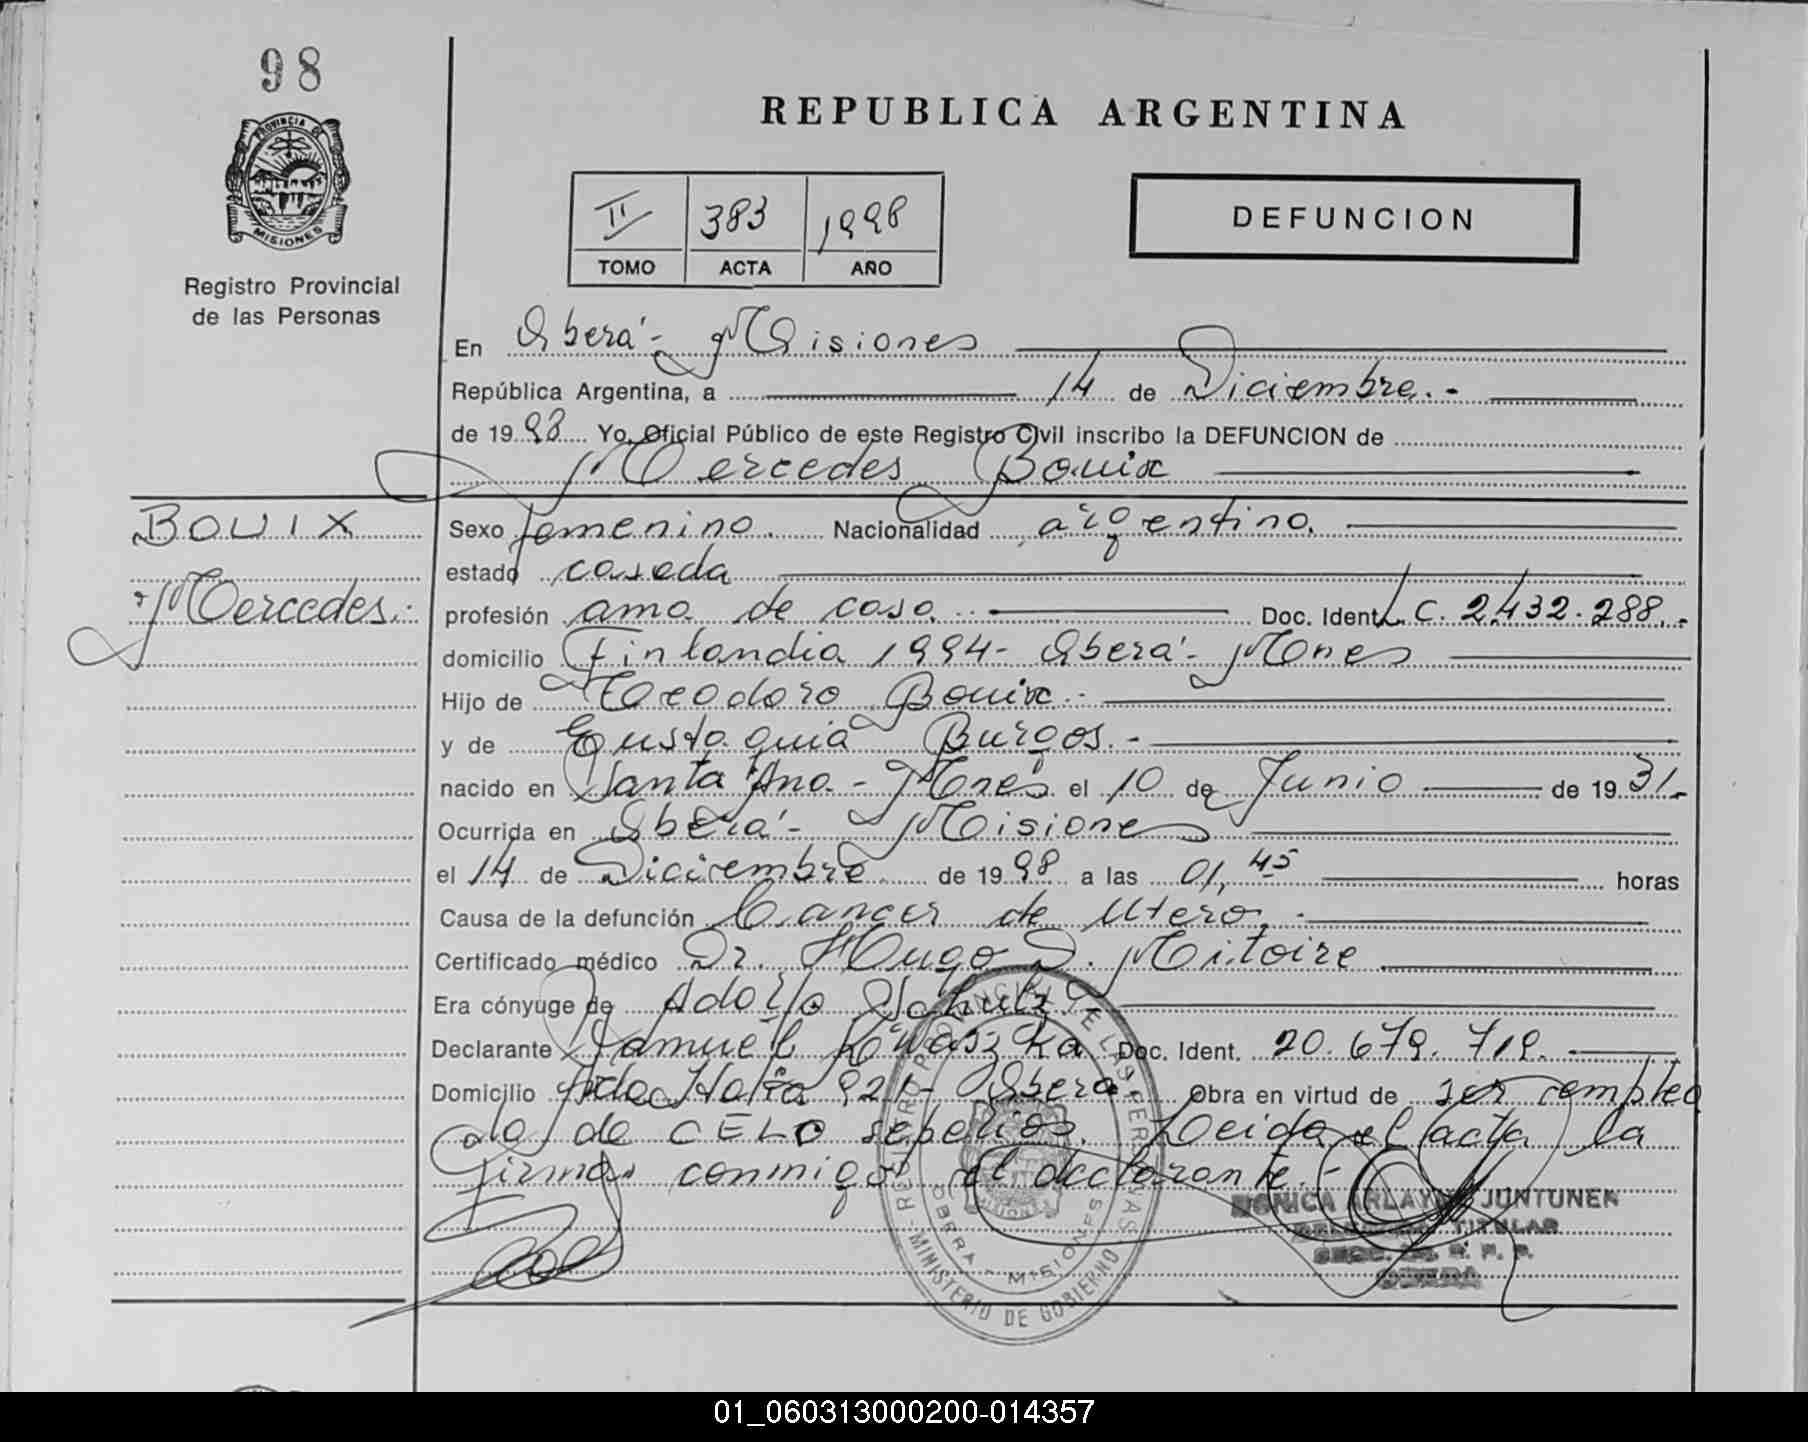 98
PROVINCIA DE
MISIONES
Registro Provincial
de las Personas
REPUBLICA ARGENTINA
II 383 1998
TOMO ACTA AÑO
DEFUNCION
En Oberá - Misiones
República Argentina, a 14 de Diciembre.-
de 19 98 Yo, Oficial Público de este Registro Civil inscribo la DEFUNCION de
Mercedes Bouix
BOUIX
Mercedes.-
Sexo femenino. Nacionalidad argentina.
estado casada
profesión ama de casa.. Doc. Ident. L.C. 2.432.288.-
domicilio Finlandia 1994- Oberá- Mnes
Hijo de Teodoro Bouix.-
y de Eustaquia Burgos.-
nacido en Santa Ana.- Mnes el 10 de Junio de 19 31.-
Ocurrida en Oberá- Misiones
el 14 de Diciembre de 19 98 a las 01,45 horas
Causa de la defunción Cancer de Utero.-
Certificado médico Dr. Hugo D. Mitoire
Era cónyuge de Adolfo
Declarante Samuel Kwaszka Doc. Ident. 20.679.719.
Domicilio Avda Italia 921- Oberá. Obra en virtud de ser emplea
do de CELO sepelios. Leida el acta la
firma conmigo el declarante.-
REGISTRO PROVINCIAL DE LAS PERSONAS
MINISTERIO DE GOBIERNO
OBERA - MISIONES
MISIONES
MONICA ARLAYNE JUNTUNEN
TITULAR
OBERA
01_060313000200-014357